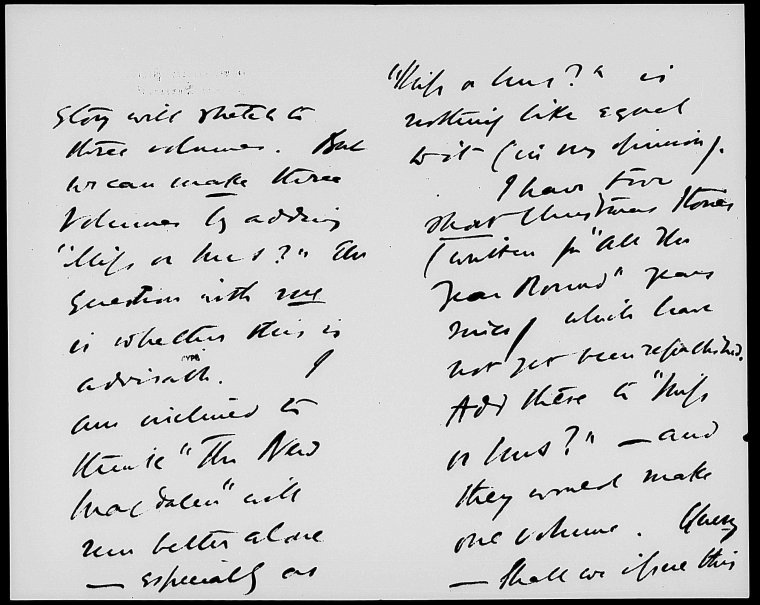 story will stretch to
three volumes. But
we can make three
volumes by adding
"Miss or Mrs?" The
question with me
is whether this is
advisable. I
am inclined to
think "The New
Magdalen" will
run better alone
— especially as
"Miss or Mrs?" is
nothing like equal
to it (in my opinion).
I have two
short Christmas Stories
(written for "All The
Year Round" years
since) which have
not yet been republished.
Add these to "Miss
or Mrs?" — and
they would make
one volume. Query
— Shall we issue this